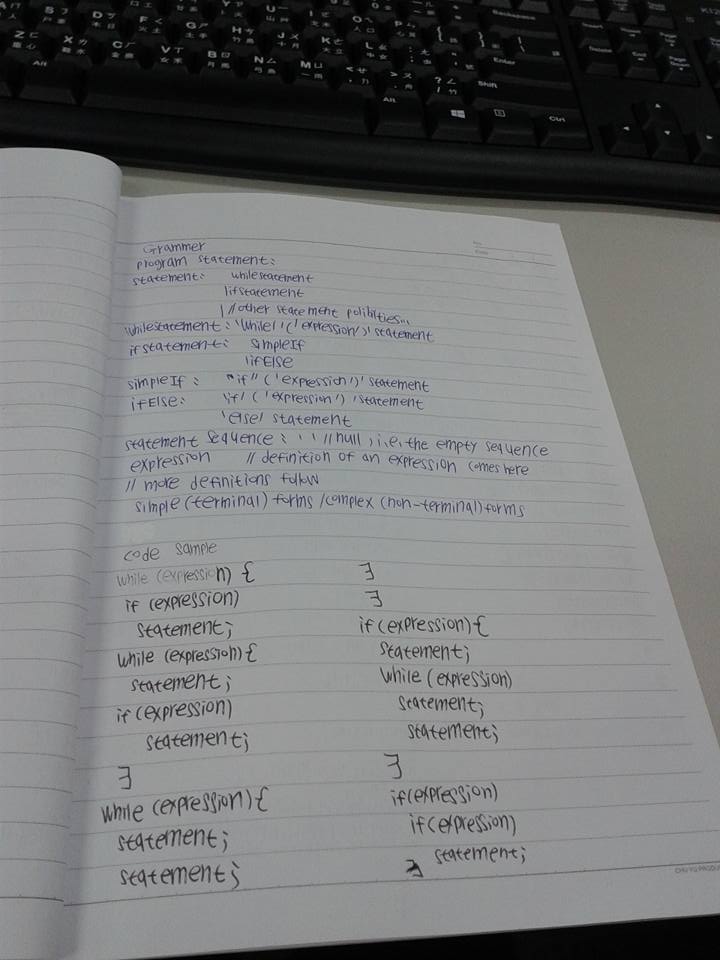 Backspace
Enter
Shift
Alt
Alt
Ctrl
Grammer
program statement:
statement: whilestatement
|ifstatement
|//other statement polibilties...
whilestatement: 'while' '(' expression ')' statement
ifstatement: simpleIf
|ifElse
simpleIf: "if" '(' expression ')' statement
ifElse: 'if' '(' expression ')' statement
'else' statement
statement sequence: ' ' //null, i.e, the empty sequence
expression // definition of an expression comes here
// more definitions follow
simple (terminal) forms /complex (non-terminal) forms
code sample
while (expression) {
if (expression)
statement;
while (expression) {
statement;
if (expression)
statement;
}
while (expression) {
statement;
statement;
}
}
if (expression) {
statement;
while (expression)
statement;
statement;
}
if (expression)
if (expression)
statement;
}